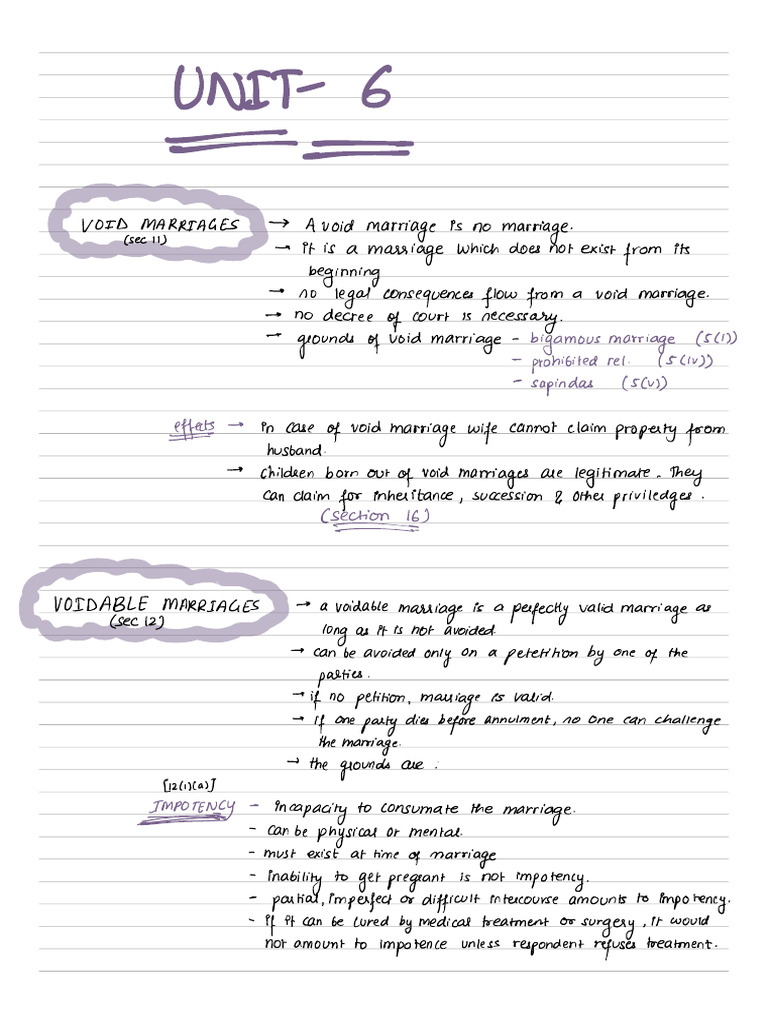 UNIT- 6
VOID MARRIAGES → A void marriage is no marriage.
(sec 11)
→ it is a marriage which does not exist from its
beginning
→ no legal consequences flow from a void marriage.
→ no decree of court is necessary.
→ grounds of void marriage - bigamous marriage (5(i))
- prohibited rel. (5(iv))
- sapindas (5(v))
effects → in case of void marriage wife cannot claim property from
husband.
→ children born out of void marriages are legitimate. They
can claim for inheritance, succession & other priviledges.
(section 16)
VOIDABLE MARRIAGES → a voidable marriage is a perfectly valid marriage as
(sec 12)
long as it is not avoided
→ can be avoided only on a petetition by one of the
parties.
→ if no petition, marriage is valid.
→ if one party dies before annulment, no one can challenge
the marriage.
→ the grounds are :
[12(1)(a)]
IMPOTENCY - incapacity to consumate the marriage.
- can be physical or mental.
- must exist at time of marriage
- inability to get pregeant is not impotency.
- partial, imperfect or difficult intercourse amounts to impotency.
- if it can be cured by medical treatment or surgery, it would
not amount to impotence unless respondent refuses treatment.